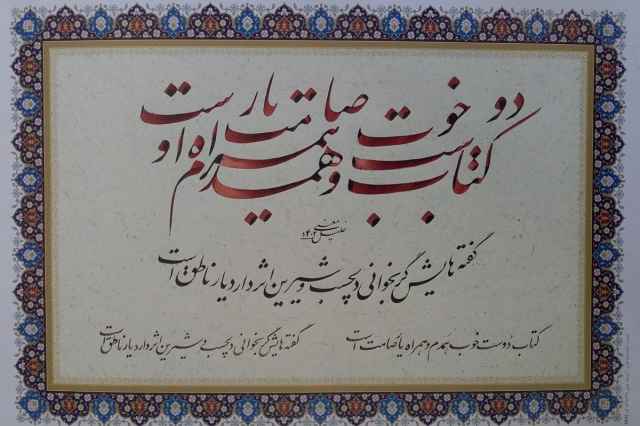 کتاب دوست خوب همدم و همراه صامت است
خلیل
گفته هایش گر بخوانی دلچسب و شیرین اثر دارد یار ناطق است
کتاب دوست خوب همدم و همراه صامت است
گفته هایش گر بخوانی دلچسب و شیرین اثر دارد یار ناطق است